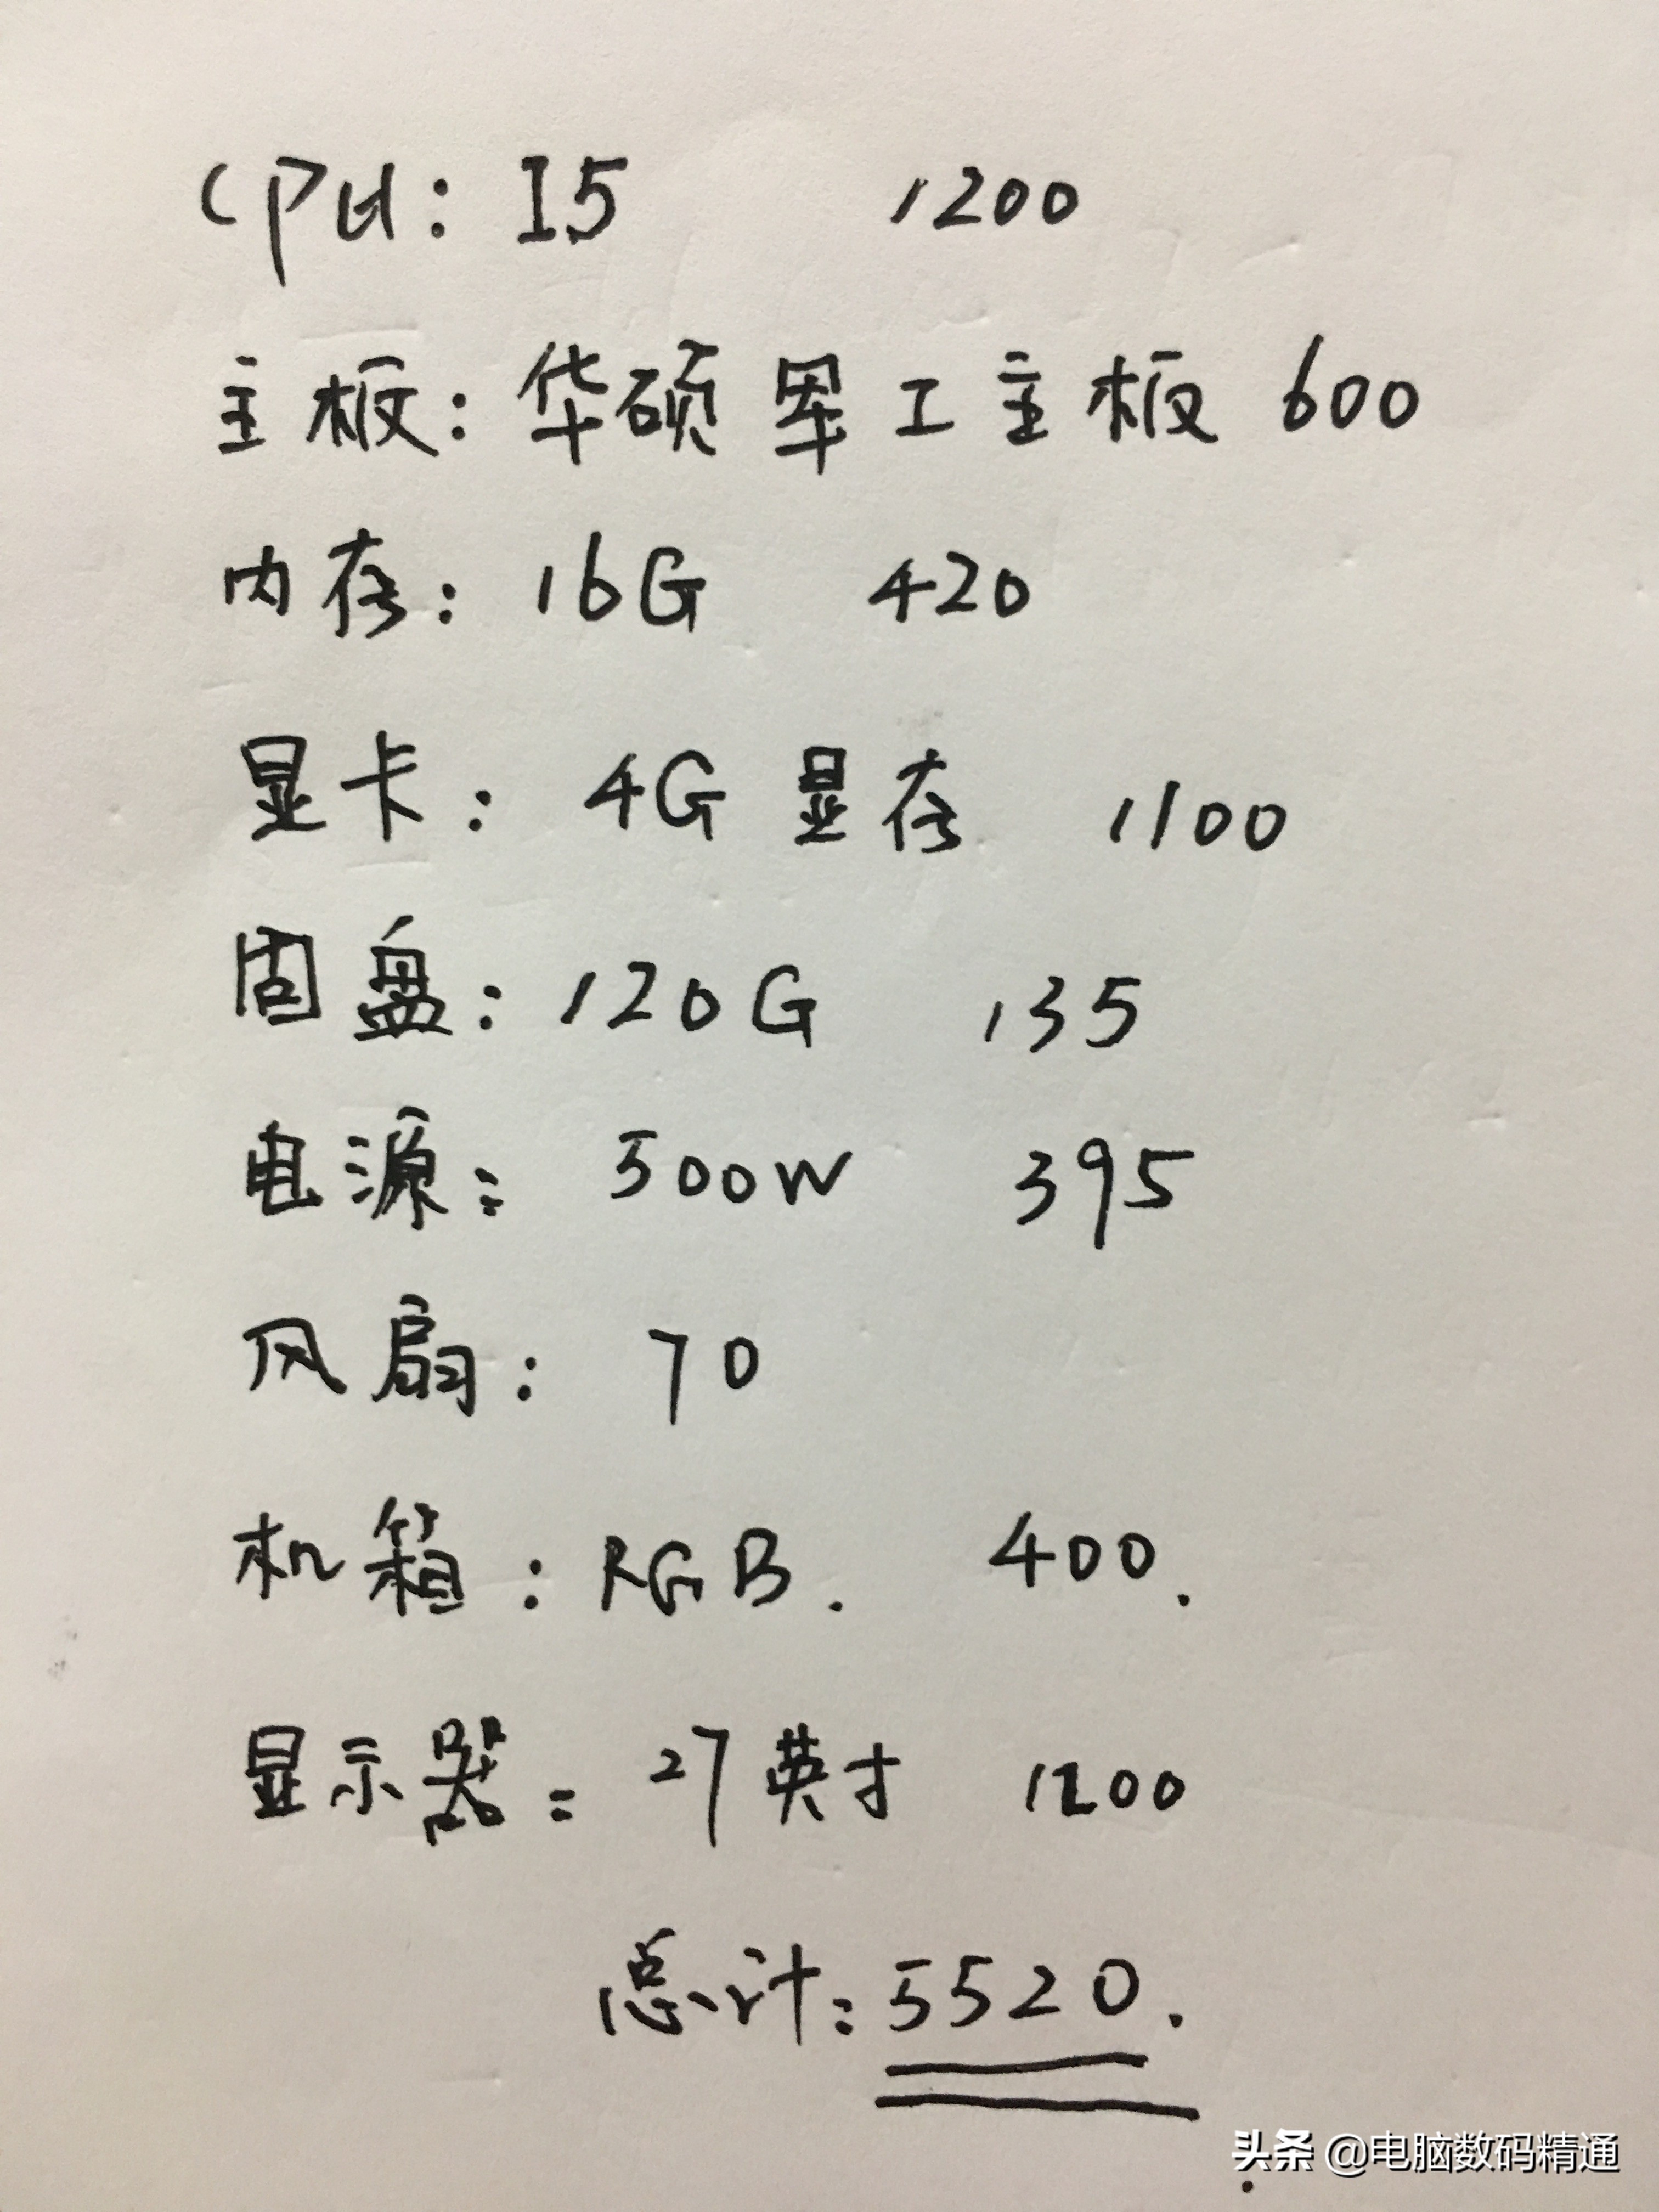 CPU: I5 1200
主板: 华硕军工主板 600
内存: 16G 420
显卡: 4G 显存 1100
固盘: 120G 135
电源: 500W 395
风扇: 70
机箱: RGB. 400.
显示器: 27英寸 1200
总计: 5520.
头条 @电脑数码精通